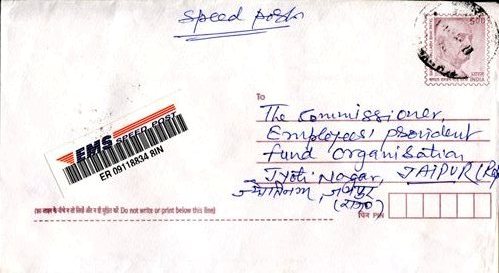 Speed Post
500
भारत INDIA
To
The Commissioner,
Employees' provident
fund organisation
Jyoti Nagar, JAIPUR (Raj
जयपुर
(राज०)
EMS SPEED POST
ER 09118834 8IN
Do not write or print below this line)
पिन PIN